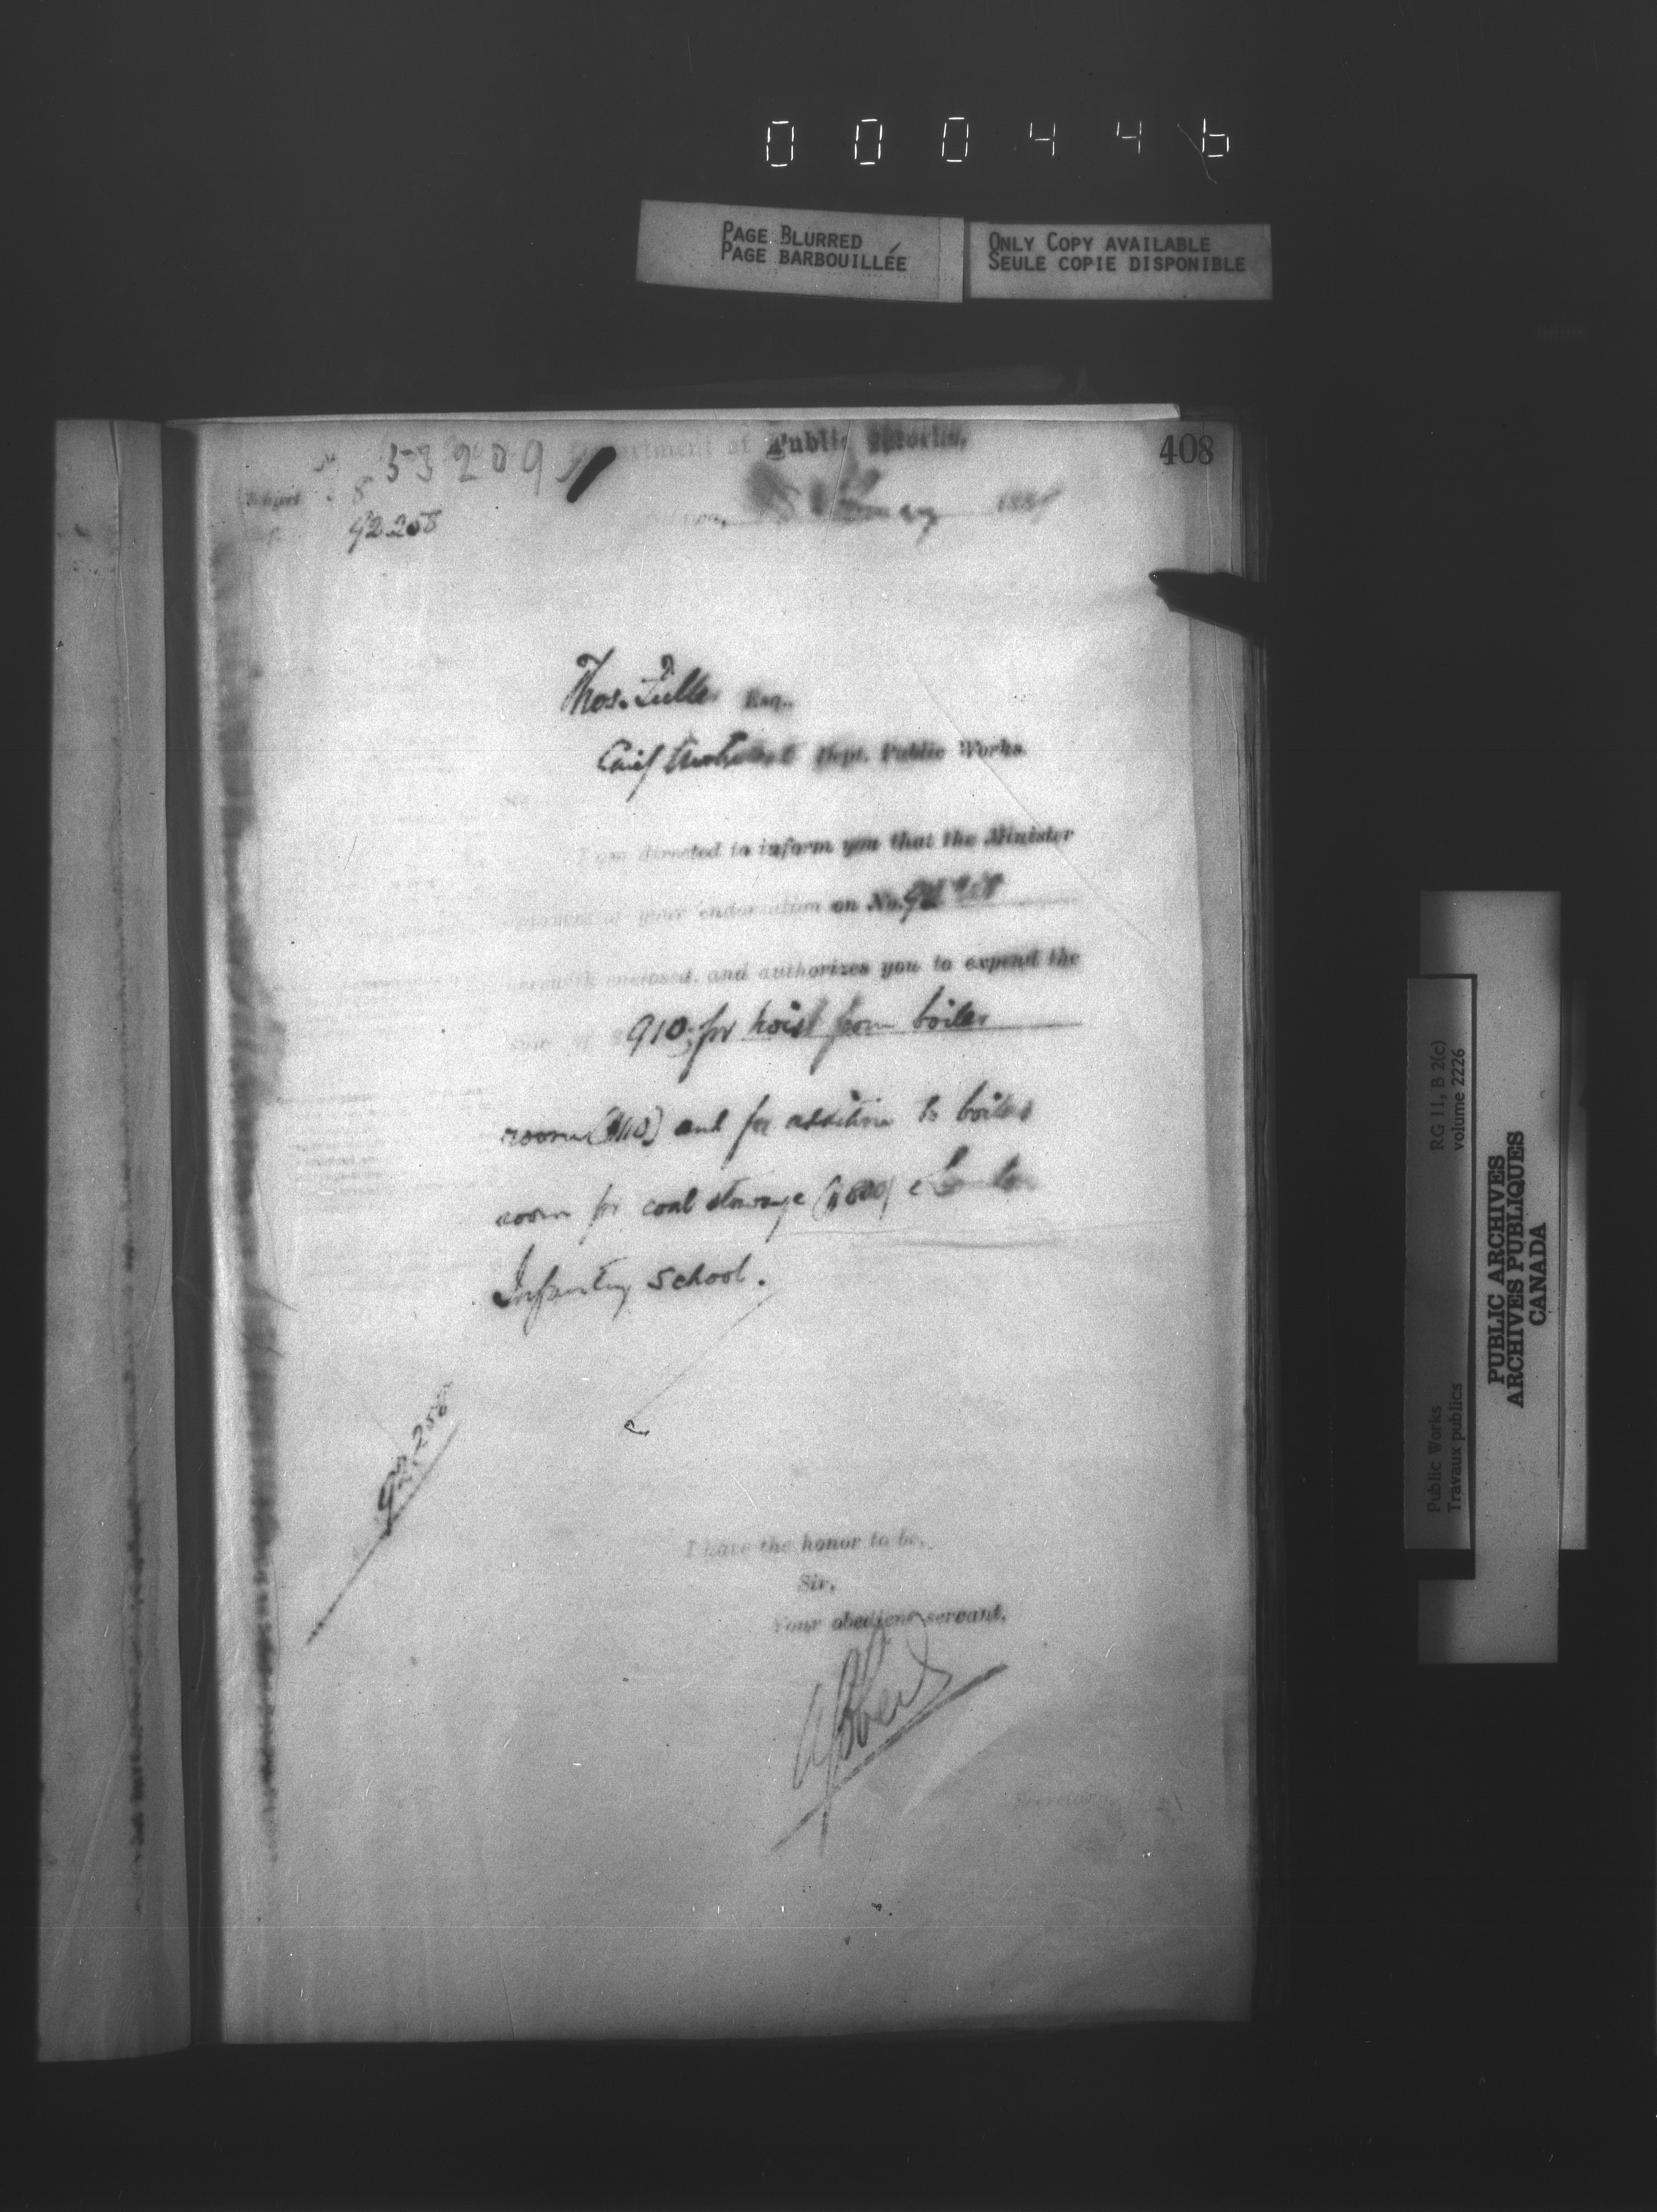 000446
PAGE BLURRED
PAGE BARBOUILLÉE
ONLY COPY AVAILABLE
SEULE COPIE DISPONIBLE
53209
Department of Public Works,
408
Subject
92258
188
Thos. Fuller Esq.,
Chief Architect Dept. Public Works
I am directed to inform you that the Minister
approves of your endorsation on No. 92258
herewith enclosed, and authorizes you to expend the
sum of $ 910. for hoist from boiler
room ($110) and for addition to boiler
room for coal storage ($800) London
Infantry School.
92258
I have the honor to be,
Sir,
Your obedient servant,
Secretary
RG 11, B 2(c)
volume 2226
Public Works
Travaux publics
PUBLIC ARCHIVES
ARCHIVES PUBLIQUES
CANADA